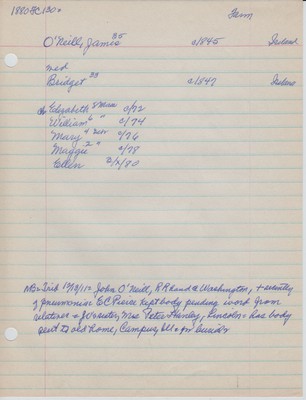 1880 SC 130 Farm
O'Neill, James 35 c/1845 Ireland
med
Bridget 33 c/1847 Ireland
ch Elizabeth 8 c/72
William 6 " c/74
Mary 4 c/76
Maggie 2 " c/78
Ellen 2/x/80
John O'Neill, RR hand @ Washington,
of pneumonia EC Pierce kept body pending word from
relatives = Mrs Peter Hanley, Lincoln = has body
sent to old home, Campus, Ill = for burial